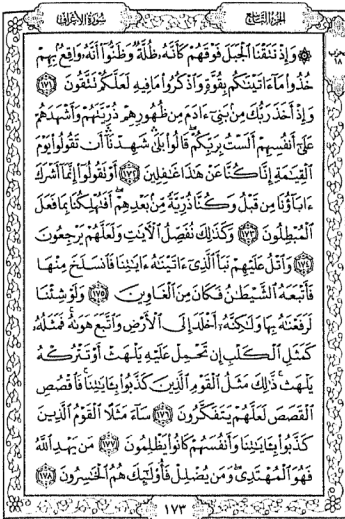 الجزء التاسع
سورة الأعراف
۞ وَإِذْ نَتَقْنَا الْجَبَلَ فَوْقَهُمْ كَأَنَّهُ ظُلَّةٌ وَظَنُّوا أَنَّهُ وَاقِعٌ بِهِمْ
خُذُوا مَا آتَيْنَاكُم بِقُوَّةٍ وَاذْكُرُوا مَا فِيهِ لَعَلَّكُمْ تَتَّقُونَ ١٧١
وَإِذْ أَخَذَ رَبُّكَ مِن بَنِي آدَمَ مِن ظُهُورِهِمْ ذُرِّيَّتَهُمْ وَأَشْهَدَهُمْ
عَلَىٰ أَنفُسِهِمْ أَلَسْتُ بِرَبِّكُمْ قَالُوا بَلَىٰ شَهِدْنَا أَن تَقُولُوا يَوْمَ
الْقِيَامَةِ إِنَّا كُنَّا عَنْ هَٰذَا غَافِلِينَ ١٧٢ أَوْ تَقُولُوا إِنَّمَا أَشْرَكَ
آبَاؤُنَا مِن قَبْلُ وَكُنَّا ذُرِّيَّةً مِّن بَعْدِهِمْ أَفَتُهْلِكُنَا بِمَا فَعَلَ
الْمُبْطِلُونَ ١٧٣ وَكَذَٰلِكَ نُفَصِّلُ الْآيَاتِ وَلَعَلَّهُمْ يَرْجِعُونَ
١٧٤ وَاتْلُ عَلَيْهِمْ نَبَأَ الَّذِي آتَيْنَاهُ آيَاتِنَا فَانسَلَخَ مِنْهَا
فَأَتْبَعَهُ الشَّيْطَانُ فَكَانَ مِنَ الْغَاوِينَ ١٧٥ وَلَوْ شِئْنَا
لَرَفَعْنَاهُ بِهَا وَلَٰكِنَّهُ أَخْلَدَ إِلَى الْأَرْضِ وَاتَّبَعَ هَوَاهُ فَمَثَلُهُ
كَمَثَلِ الْكَلْبِ إِن تَحْمِلْ عَلَيْهِ يَلْهَثْ أَوْ تَتْرُكْهُ
يَلْهَث ذَّٰلِكَ مَثَلُ الْقَوْمِ الَّذِينَ كَذَّبُوا بِآيَاتِنَا فَاقْصُصِ
الْقَصَصَ لَعَلَّهُمْ يَتَفَكَّرُونَ ١٧٦ سَاءَ مَثَلًا الْقَوْمُ الَّذِينَ
كَذَّبُوا بِآيَاتِنَا وَأَنفُسَهُمْ كَانُوا يَظْلِمُونَ ١٧٧ مَن يَهْدِ اللَّهُ
فَهُوَ الْمُهْتَدِي وَمَن يُضْلِلْ فَأُولَٰئِكَ هُمُ الْخَاسِرُونَ ١٧٨
١٧٣